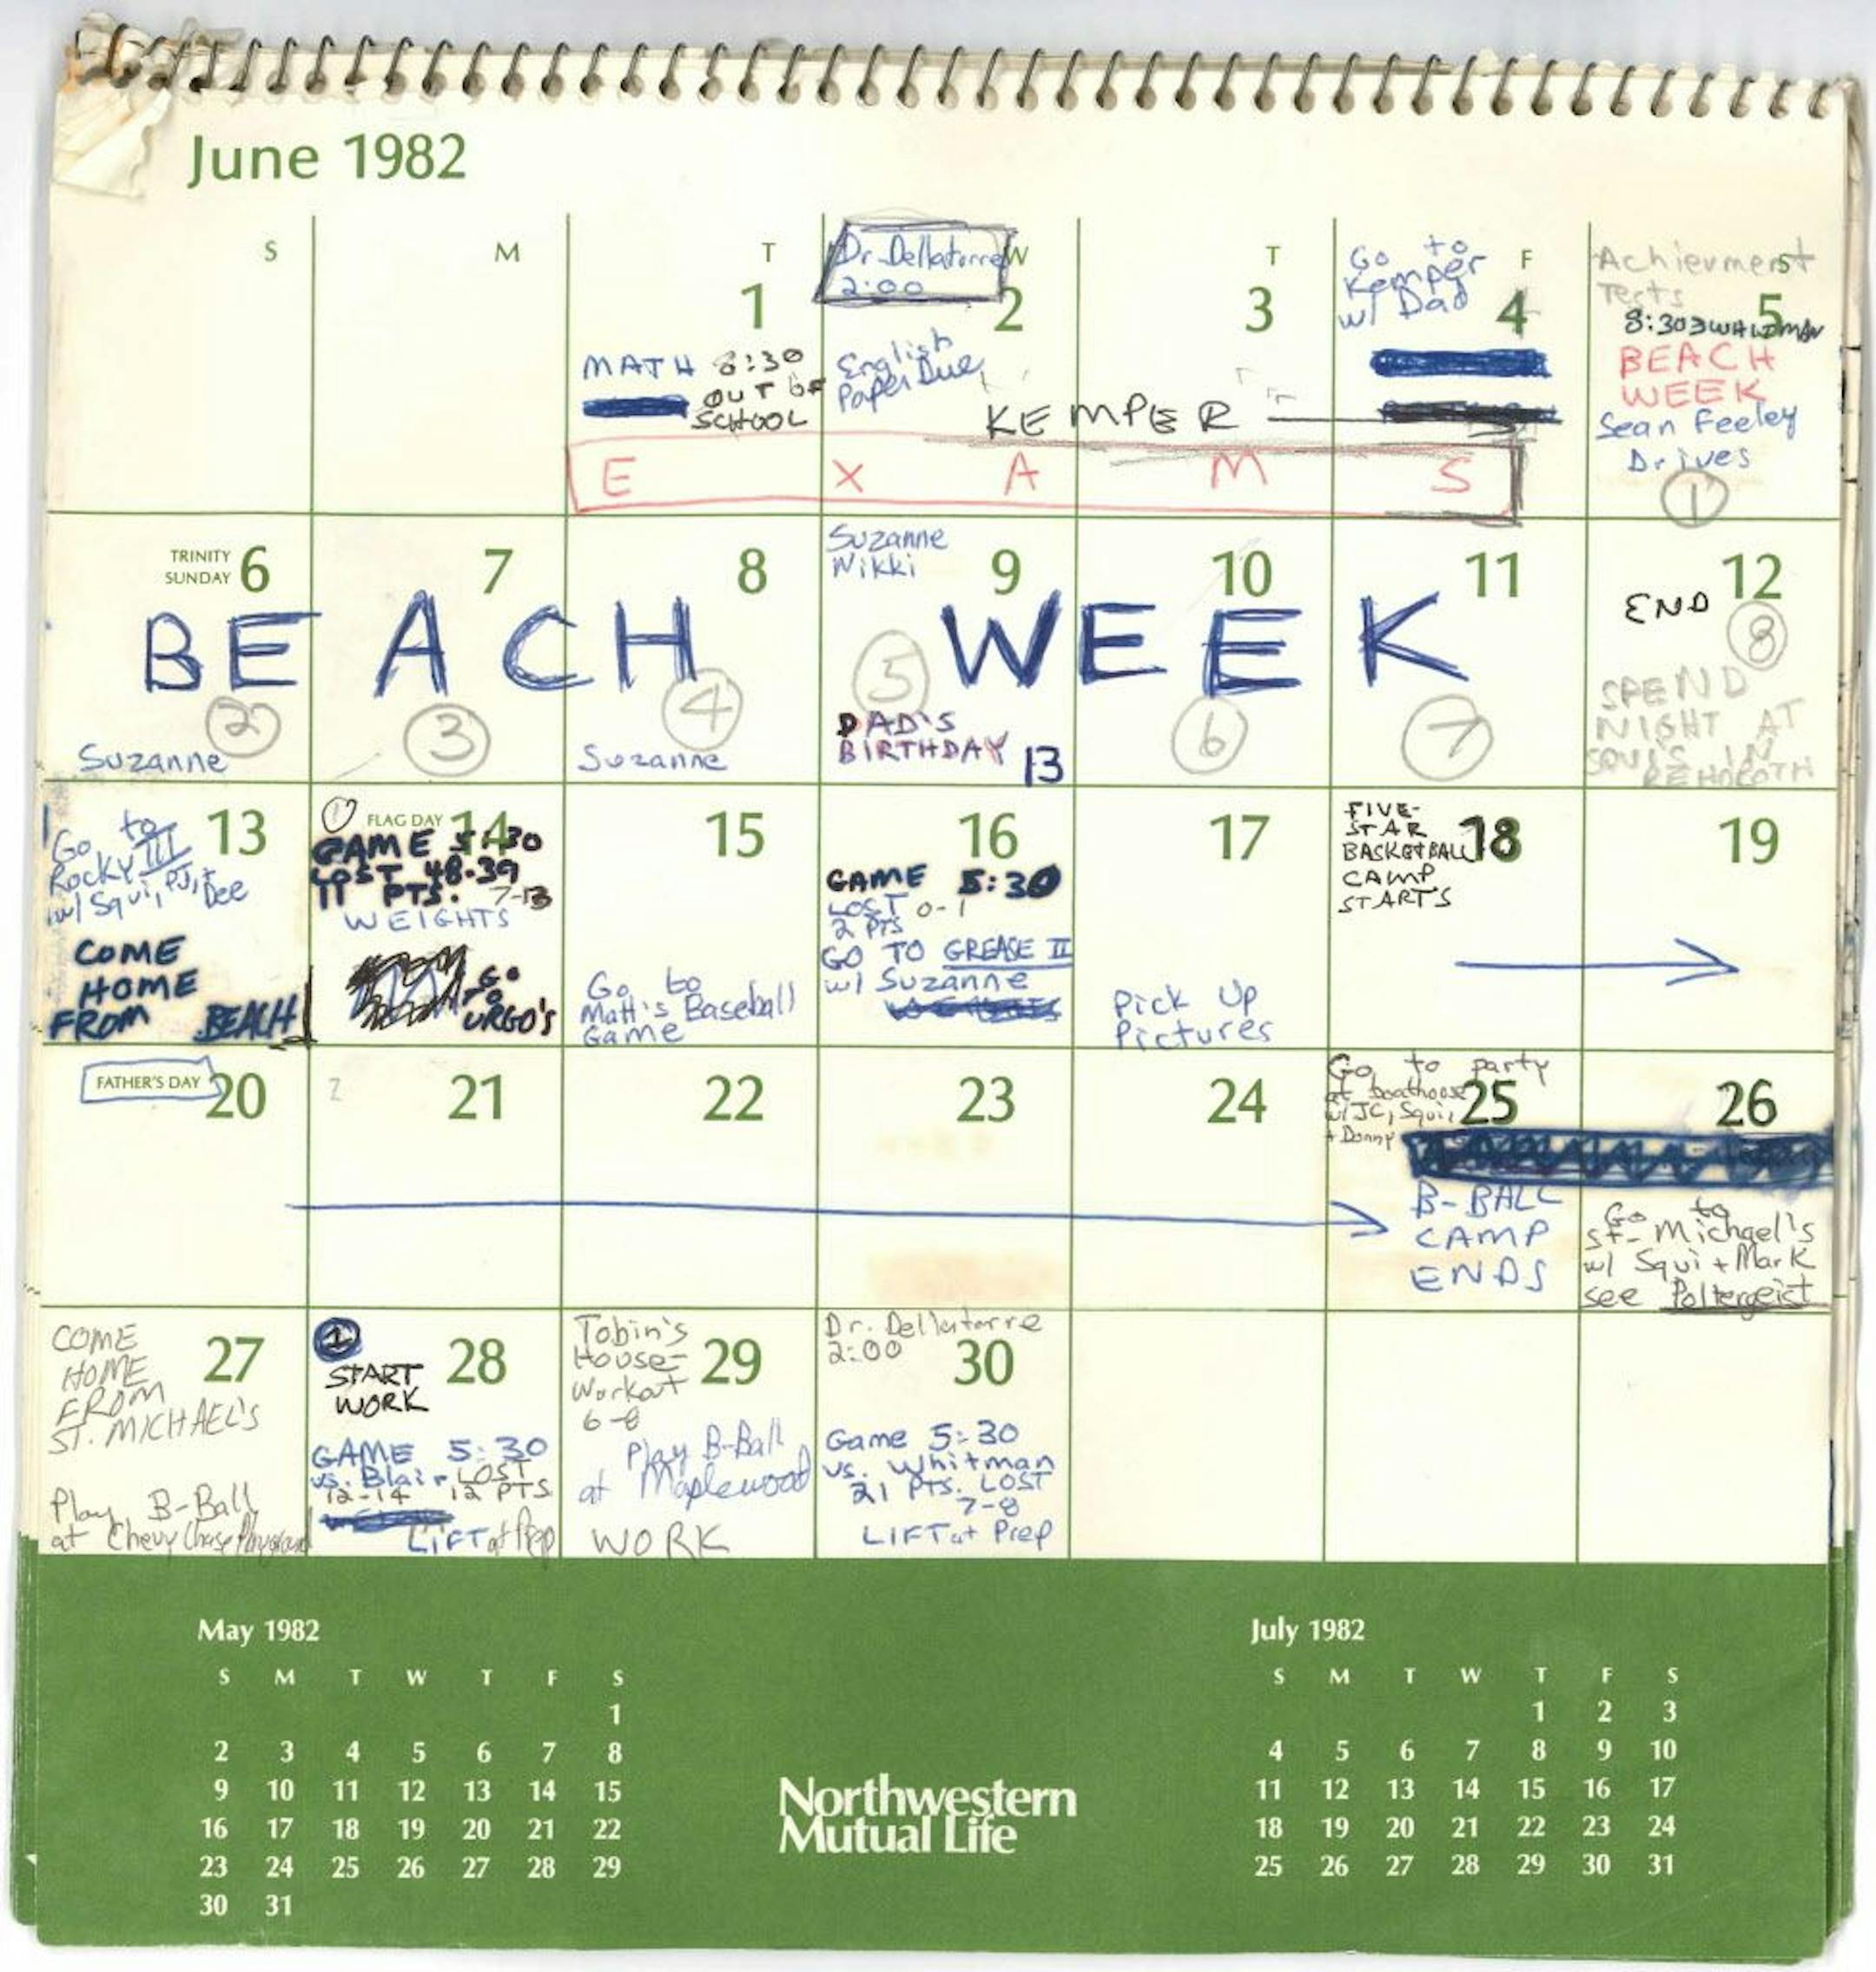 June 1982
S M T W T F S
1
MATH 8:30
OUT OF
SCHOOL
Dr. Dellatorre
2:00
2
English
Paper Due
3
KEMPER
Go to
Kemper
w/ Dad
4
E X A M S
Achievment
Tests
5
8:30 WHITMAN
BEACH
WEEK
Sean Feeley
Drives
1
TRINITY
SUNDAY 6
BEACH WEEK
2
Suzanne
7
3
8
4
Suzanne
Suzanne
Nikki
9
5
DAD'S
BIRTHDAY
13
10
6
11
7
12
END
8
SPEND
NIGHT AT
SQUI'S IN
REHOBOTH
13
Go to
Rocky III
w/ Squi, PJ, +
Dee
COME
HOME
FROM BEACH
1
FLAG DAY 14
GAME 5:30
LOST 48-39
11 PTS. 7-13
WEIGHTS
GO
TO
URGO'S
15
Go to
Matt's Baseball
Game
16
GAME 5:30
LOST 0-1
2 PTS
GO TO GREASE II
w/ Suzanne
17
Pick Up
Pictures
18
FIVE-
STAR
BASKETBALL
CAMP
STARTS
19
FATHER'S DAY 20
2
21
22
23
24
Go to party
at boathouse
w/ JC, Squi,
+ Donny
25
B-BALL
CAMP
ENDS
26
Go to
St. Michael's
w/ Squi + Mark
see Poltergeist
COME
HOME
FROM
ST. MICHAEL'S
27
Play B-Ball
at Chevy Chase Playground
1
START
WORK
28
GAME 5:30
vs. Blair LOST
12-14 12 PTS
LIFT at Prep
Tobin's
House-
Workout
6-8
29
Play B-Ball
at Maplewood
WORK
Dr. Dellatorre
2:00
30
Game 5:30
vs. Whitman
21 PTS. LOST
7-8
LIFT at Prep
May 1982
S M T W T F S
1
2 3 4 5 6 7 8
9 10 11 12 13 14 15
16 17 18 19 20 21 22
23 24 25 26 27 28 29
30 31
Northwestern
Mutual Life
July 1982
S M T W T F S
1 2 3
4 5 6 7 8 9 10
11 12 13 14 15 16 17
18 19 20 21 22 23 24
25 26 27 28 29 30 31